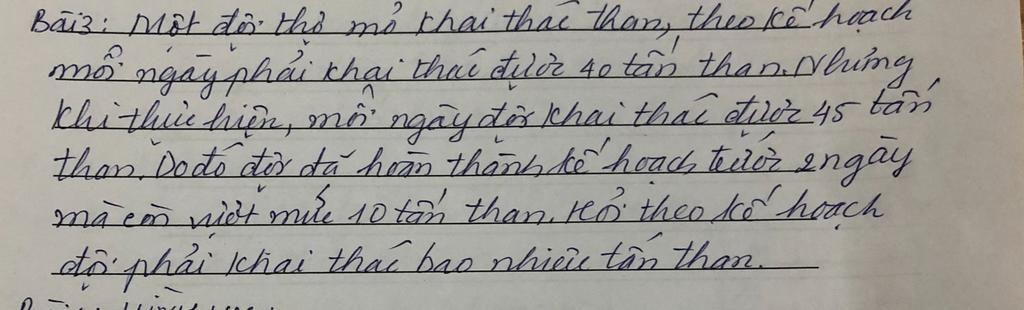 Bài 3: Một đội thợ mỏ khai thác than, theo kế hoạch
mỗi ngày phải khai thác được 40 tấn than. Nhưng
khi thực hiện, mỗi ngày đội khai thác được 45 tấn
than. Do đó đội đã hoàn thành kế hoạch trước 2 ngày
mà còn vượt mức 10 tấn than. Hỏi theo kế hoạch
đội phải khai thác bao nhiêu tấn than.